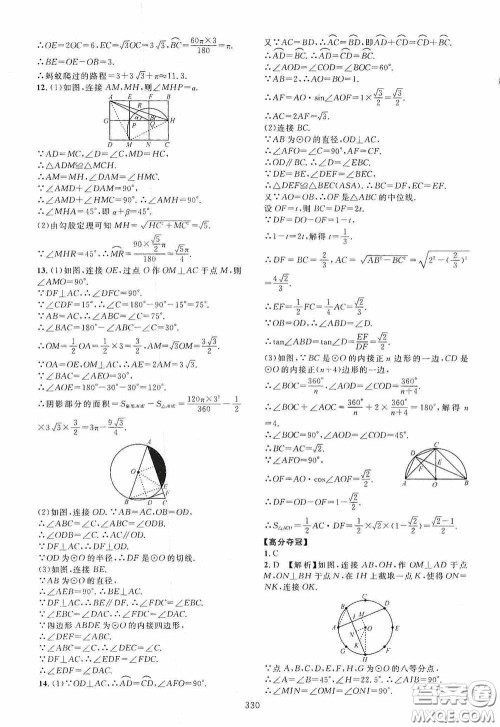 ∴OE=2OC=6,EC=√3OC=3√3,⌒BC=60π×3/180=π.
∴BE=OE-OB=3.
∴蚂蚁爬过的路程=3+3√3+π≈11.3.
12.(1)如图,连接MH,则∠MHP=α.
A E H B G C D M
∵AD=MC,∠D=∠C,MD=HC.
∴△ADM≌△MCH.
∴AM=MH,∠DAM=∠HMC.
∵∠AMD+∠DAM=90°,
∴∠AMD+∠HMC=90°.
∴∠AMH=90°.
∴∠MHA=45°,即α+β=45°.
(2)由勾股定理可知MH=√(HC²+MC²)=√5.
∵∠MHR=45°,∴⌒MR=90×√5/2 π/180=√5π/4.
13.(1)如图,连接OE,过点O作OM⊥AC于点M,则∠AMO=90°.
∵DF⊥AC,∴∠DFC=90°.
∵∠CDF=15°,∴∠C=180°-90°-15°=75°.
∵AB=AC,∴∠ABC=∠C=75°.
∴∠BAC=180°-∠ABC-∠C=30°.
∴OM=1/2OA=1/2×3=3/2,AM=√3OM=3√3/2.
∵OA=OE,OM⊥AC,∴AE=2AM=3√3.
∵∠BAC=30°,∴∠AEO=∠BAC=30°.
∴∠AOE=180°-30°-30°=120°.
∴阴影部分的面积=S扇形AOE-S△AOE=120π×3²/360-1/2×3√3×3/2=3π-9√3/4.
A M O E F B D C
(2)如图,连接OD.∵AB=AC,OB=OD,
∴∠ABC=∠C,∠ABC=∠ODB.
∴∠ODB=∠C.∴AC∥OD.
∵DF⊥AC,∴DF⊥OD.
∵OD为⊙O的半径,∴DF是⊙O的切线.
(3)如图,连接BE.
∵AB为⊙O的直径,
∴∠AEB=90°,∴BE⊥AC.
∵DF⊥AC,∴BE∥DF.∴∠FDC=∠EBC.
∵∠EBC=∠DAC,∴∠FDC=∠DAC.
∵四边形ABDE为⊙O的内接四边形,
∴∠DEF=∠ABC.
∵∠ABC=∠C,∴∠DEC=∠C.
∵DF⊥AC,∴∠EDF=∠FDC.
∴∠EDF=∠DAC.
14.(1)∵OD⊥AC,∴⌒AD=⌒CD,∠AFO=90°.
又∵AC=BD,∴⌒AC=⌒BD,即⌒AD+⌒CD=⌒CD+⌒BC.
∴⌒AD=⌒BC.∴⌒AD=⌒CD=⌒BC.
∴∠AOD=∠COD=∠BOC=60°.
∵AB=2,∴AO=BO=1.
∴AF=AO·sin∠AOF=1×√3/2=√3/2.
∴AC=2AF=√3.
(2)连接BC.
∵AB为⊙O的直径,OD⊥AC,
∴∠AFO=∠C=90°.
∴OD∥BC.∴∠D=∠EBC.
∵DE=BE,∠DEF=∠BEC,
∴△DEF≌△BEC(ASA).∴BC=DF,EC=EF.
又∵AO=OB,∴OF是△ABC的中位线.
设OF=t,则BC=DF=2t.
∵DF=DO-OF=1-t,
∴1-t=2t,解得t=1/3.
∴DF=BC=2/3,AC=√(AB²-BC²)=√(2²-(2/3)²)=4√2/3.
∴EF=1/2FC=1/4AC=√2/3.
∵OB=OD,∴∠ABD=∠D.
∴tan∠ABD=tan∠D=EF/DF=√2/2.
(3)如图,∵BC是⊙O的内接正n边形的一边,CD是⊙O的内接正(n+4)边形的一边,
∴∠BOC=360°/n,∠AOD=∠COD=360°/(n+4).
∴∠BOC+2∠AOD=360°/n+2×360°/(n+4)=180°,解得n=4.
∴∠BOC=90°,∠AOD=∠COD=45°.
∴BC=AC=√2.
∵∠AFO=90°,
∴OF=AO·cos∠AOF=√2/2.
∴DF=OD-OF=1-√2/2.
D C F E A O B
∴S△ACD=1/2AC·DF=1/2×√2×(1-√2/2)=(√2-1)/2.
【高分夺冠】
1.C
2.D 【解析】如图,连接AB,OH,作OM⊥AD于点M,ON⊥BH于点N,在IH上截取一点K,使得ON=NK,连接OK.
∵点A,B,C,D,E,F,H,G为⊙O的八等分点,
∴∠AIB=∠MIN=45°.
∴∠AIN=∠AIM=90°.
330
答案圈